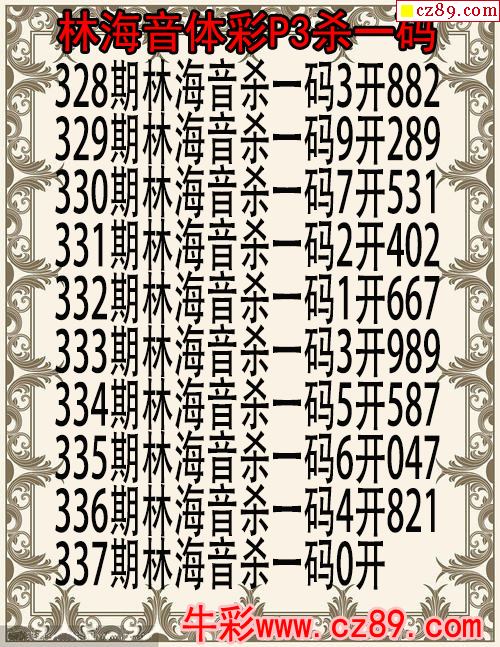 cz89.com
林海音体彩P3杀一码
328期林海音杀一码3开882
329期林海音杀一码9开289
330期林海音杀一码7开531
331期林海音杀一码2开402
332期林海音杀一码1开667
333期林海音杀一码3开989
334期林海音杀一码5开587
335期林海音杀一码6开047
336期林海音杀一码4开821
337期林海音杀一码0开
牛彩www.cz89.com